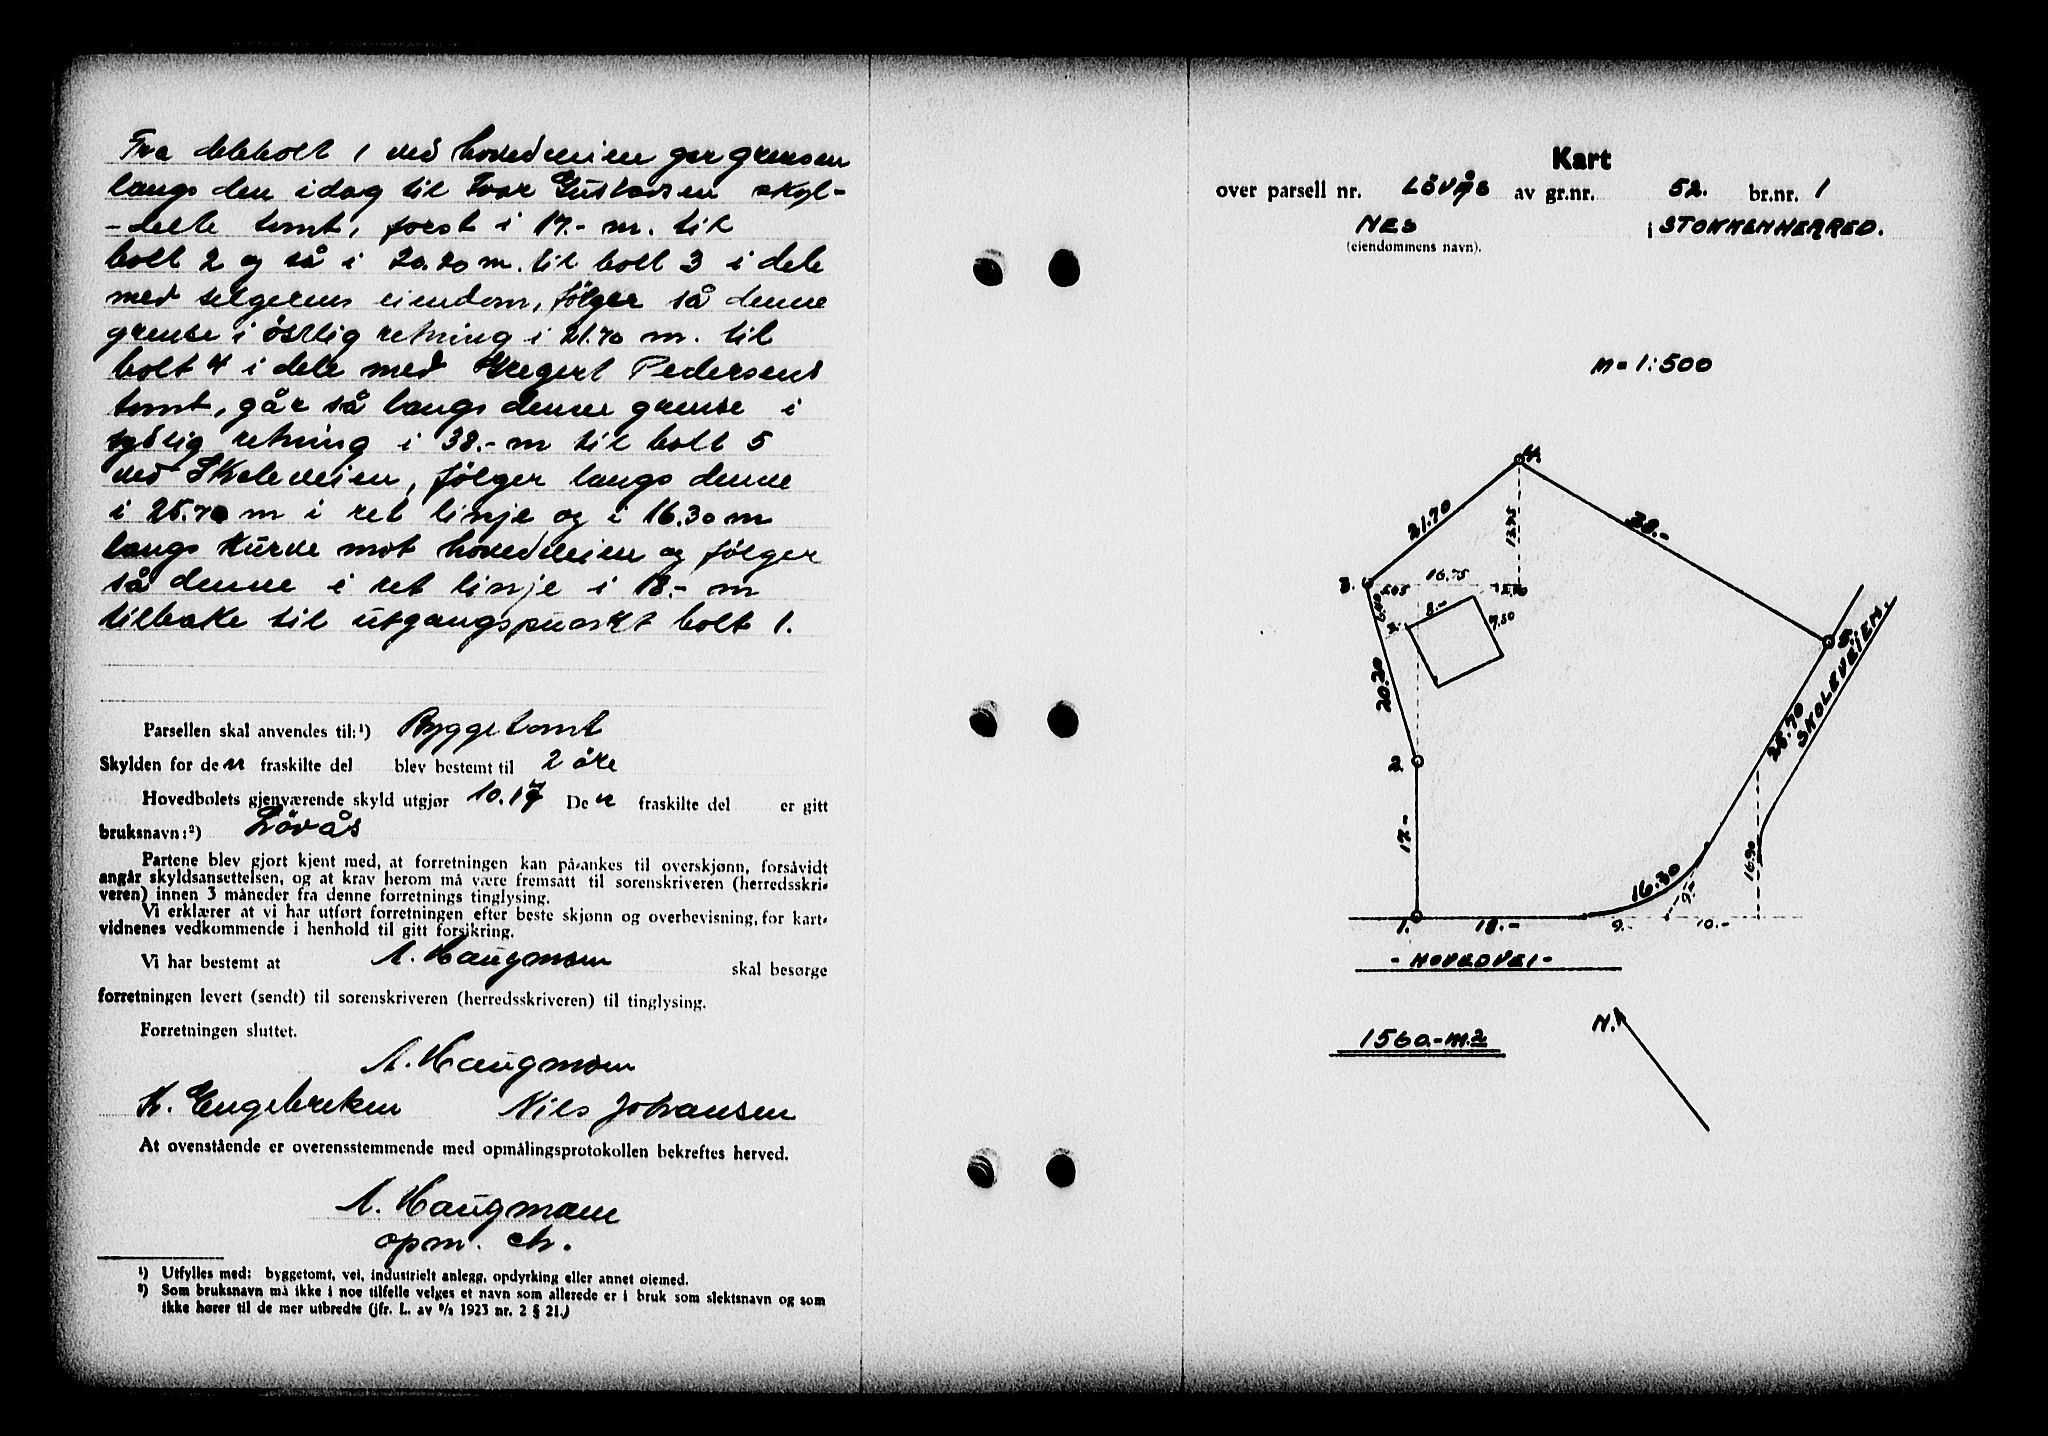 Fra delebolt 1 ved hovedveien går grensen
langs den idag til Ivar Gustavsen skyl-
- delte tomt, først i 17.- m. til
bolt 2 og så i 20.20 m. til bolt 3 i dele
med selgerens eiendom, følger så denne
grense i östlig retning i 21.70 m. til
bolt 4 i dele med Kregert Pedersens
tomt, går så langs denne grense i
sydlig retning i 38.- m til bolt 5
ved Skoleveien, følger langs denne
i 25.70 m i ret linje og i 16.30 m
langs kurve mot hovedveien og følger
så denne i ret linje i 18.- m
tilbake til utgangspunkt bolt 1.
Parsellen skal anvendes til:¹) Byggetomt
Skylden for den fraskilte del blev bestemt til 2 öre
Hovedbølets gjenværende skyld utgjør 10.17 Den fraskilte del er gitt
bruksnavn:²) Lövås
Partene blev gjort kjent med, at forretningen kan på-ankes til overskjønn, forsåvidt
angår skyldsansettelsen, og at krav herom må være fremsatt til sorenskriveren (herredsskri-
veren) innen 3 måneder fra denne forretnings tinglysing.
Vi erklærer at vi har utført forretningen efter beste skjønn og overbevisning, for kart-
vidnenes vedkommende i henhold til gitt forsikring.
Vi har bestemt at A. Haugmoen skal besørge
forretningen levert (sendt) til sorenskriveren (herredsskriveren) til tinglysing.
Forretningen sluttet.
A. Haugmoen
K. Engebretsen Nils Johansen
At ovenstående er overensstemmende med opmålingsprotokollen bekreftes herved.
A. Haugmoen
opm. ch.
¹) Utfylles med: byggetomt, vei, industrielt anlegg, opdyrking eller annet øiemed.
²) Som bruksnavn må ikke i noe tilfelle velges et navn som allerede er i bruk som slektsnavn og som
ikke hører til de mer utbredte (jfr. L. av ⁹/₂ 1923 nr. 2 § 21.)
Kart
over parsell nr. LÖVÅS av gr.nr. 52. br.nr. 1
NES i STOKKENHERRED.
(eiendommens navn).
M = 1:500
4.
21.70
38.-
13.75
3.
5.05
16.75
8.-
7.50
5.
20.20
SKOLEVEIEN.
25.70
2.
17.-
16.90
16.30
9.-
1.
18.-
9.-
10.-
- HOVEDVEI -
N.
1560.- m.²